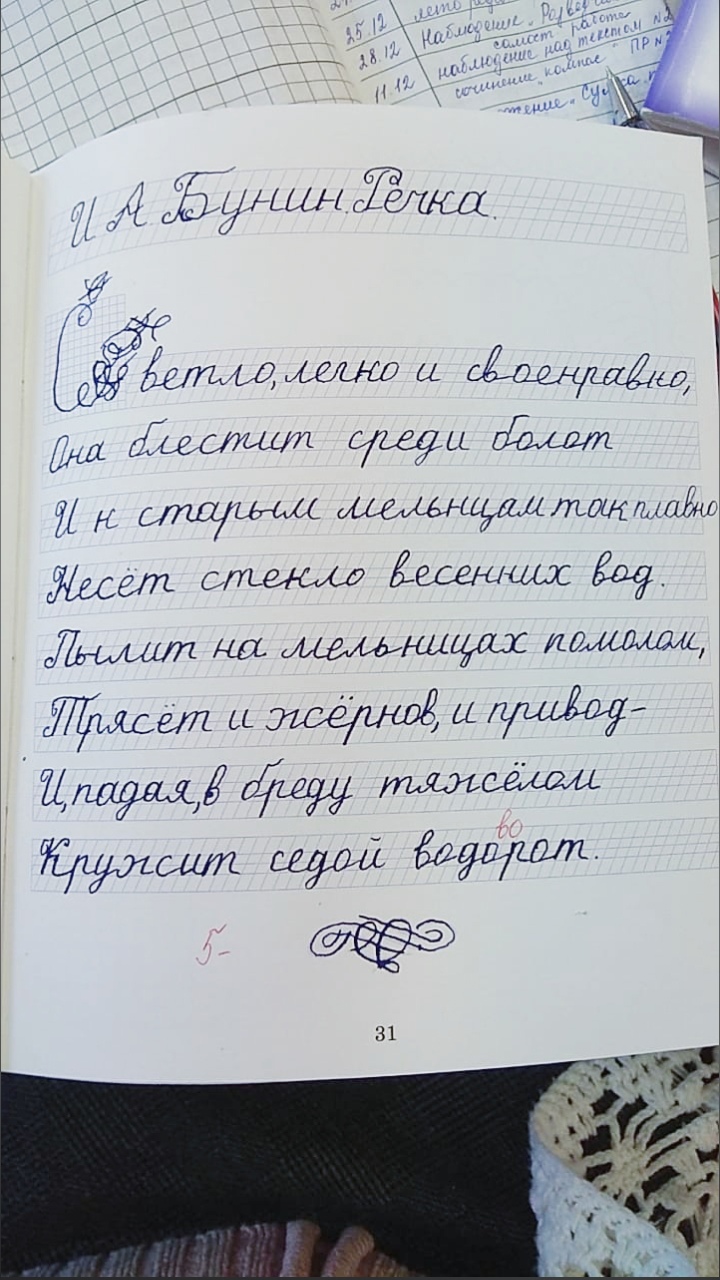 25.12 лето
28.12 Наблюдение
самост работа
11.12 наблюдение над текстом №2
сочинение "компас" ПР №2
И А Бунин. Речка.
Светло, легко и своенравно,
Она блестит среди болот
И к старым мельнцам так плавно
Несёт стекло весенних вод.
Пылит на мельницах помолом,
Трясёт и жёрнов, и привод-
И, падая, в бреду тяжёлом
во
Кружит седой водорот.
5-
31